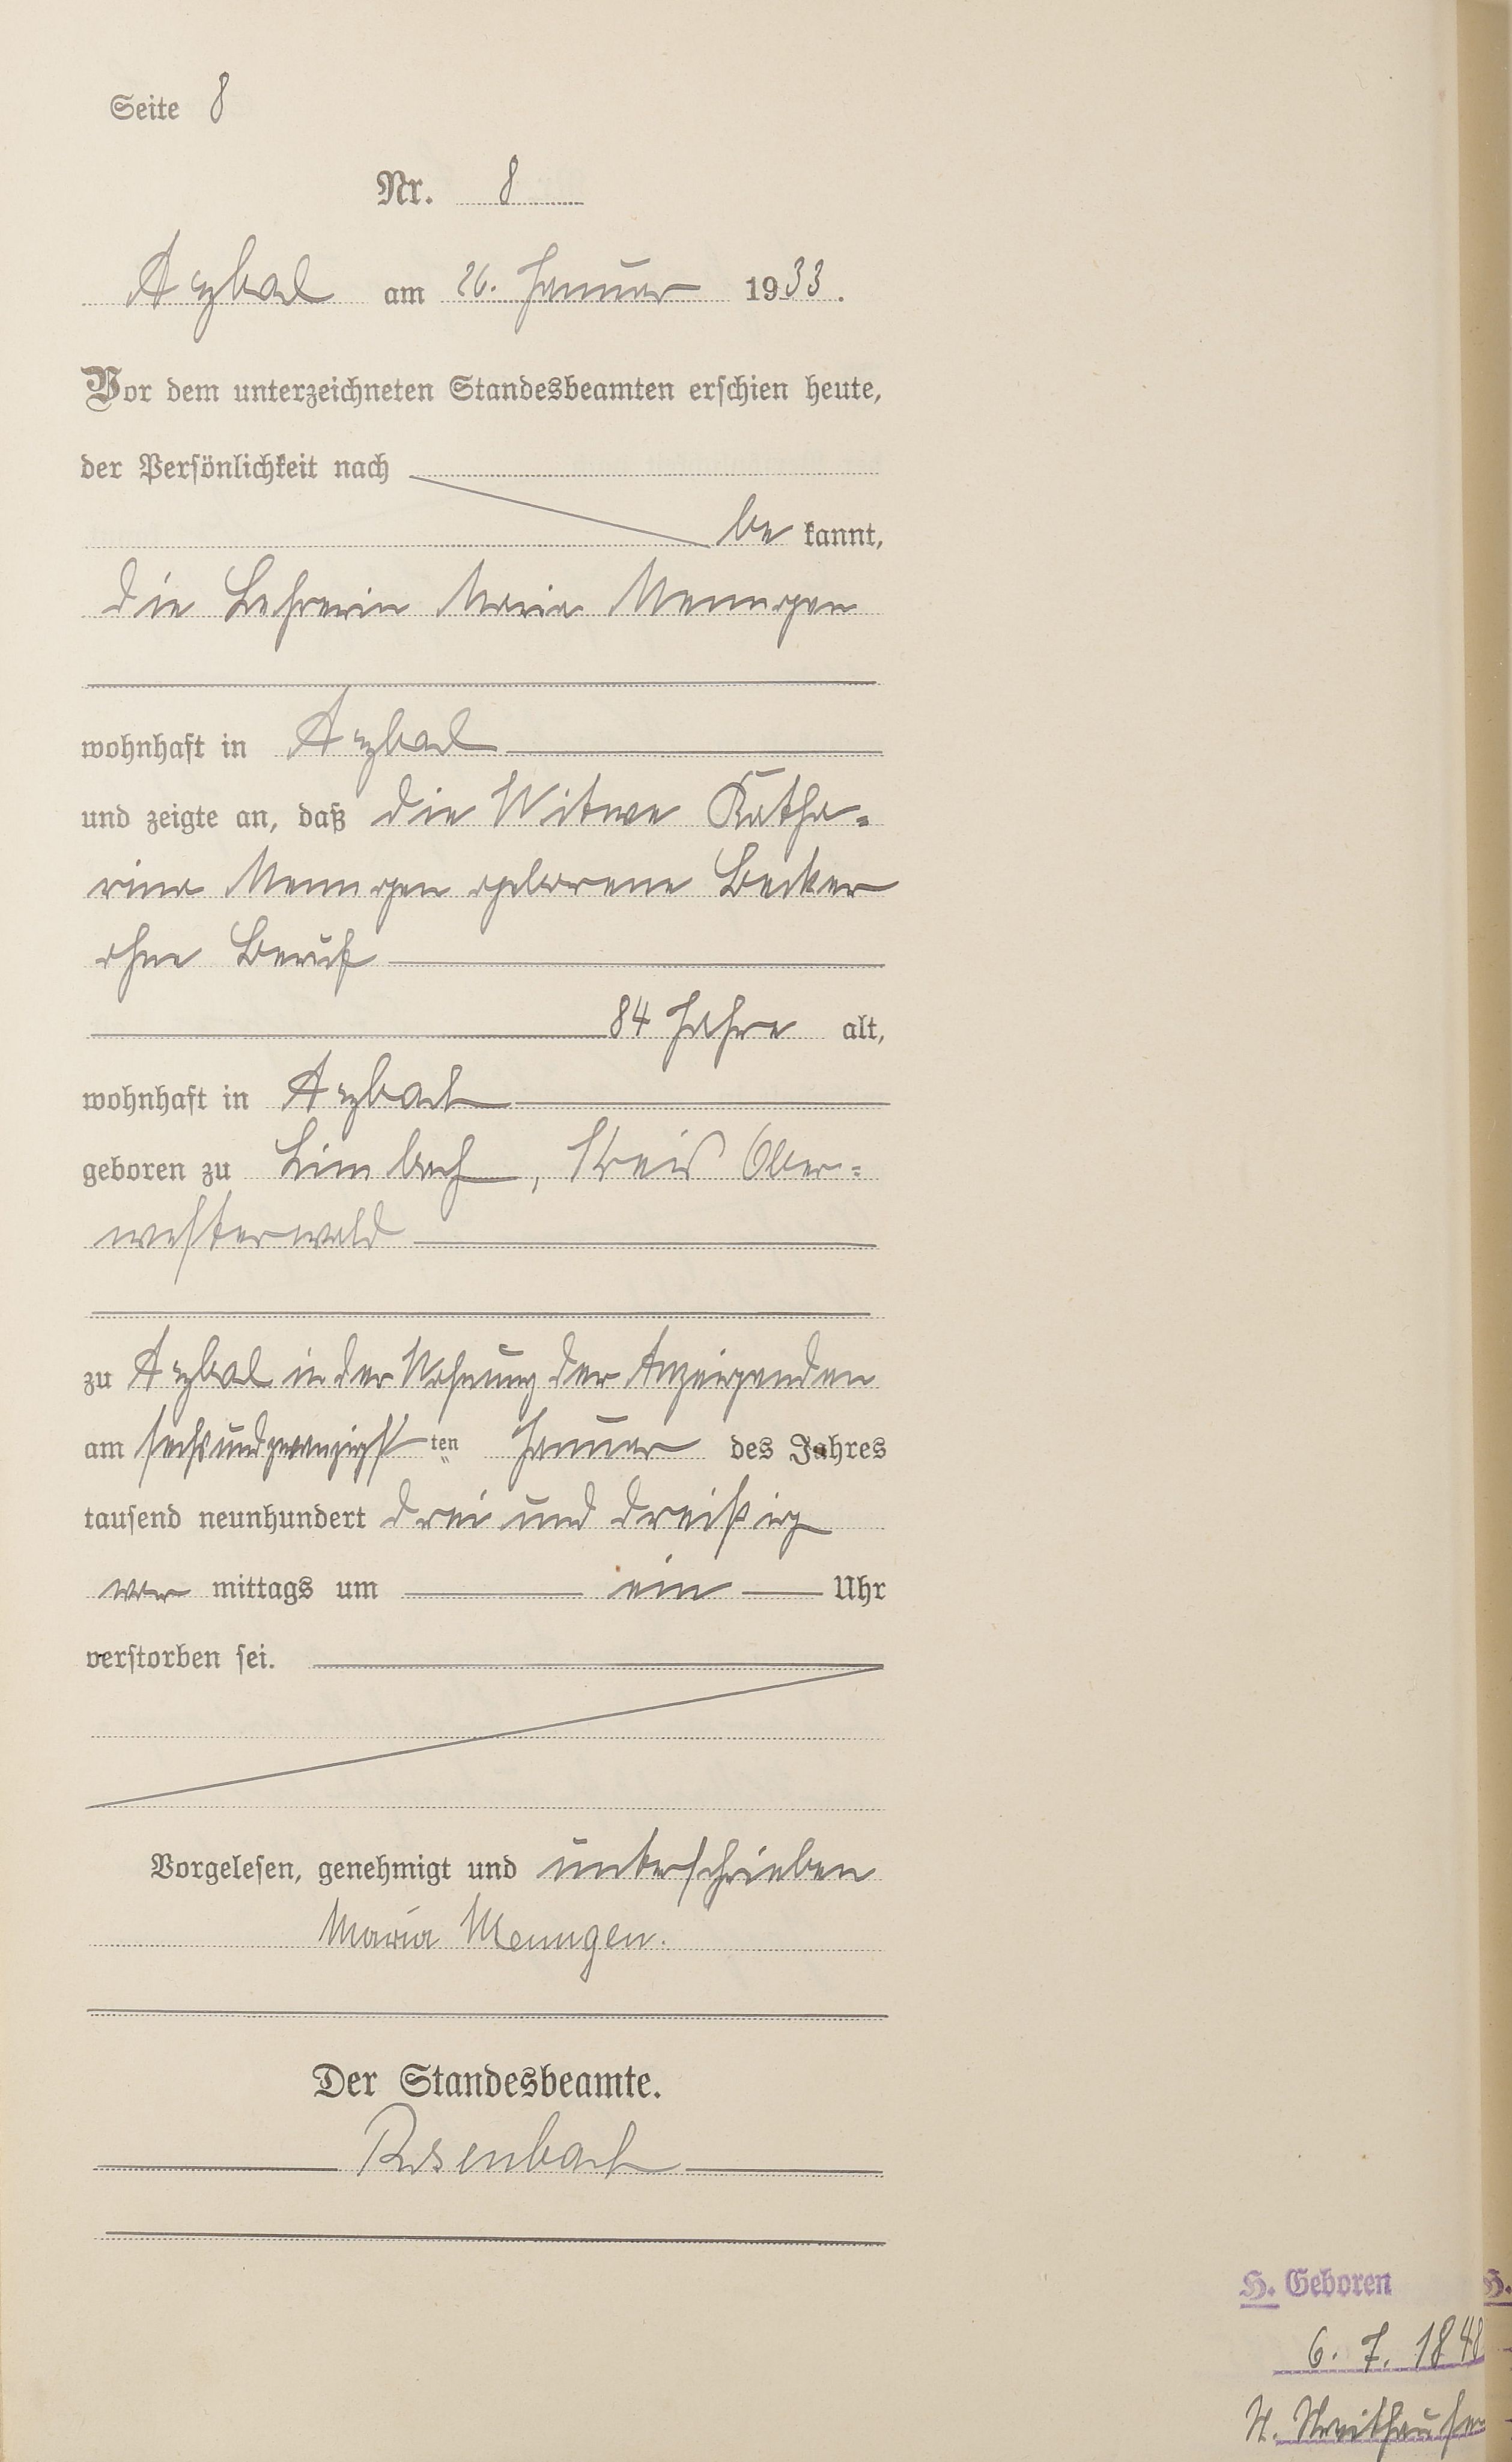 Seite 8
Nr. 8
Arzbach am 26. Januar 1933.
Vor dem unterzeichneten Standesbeamten erschien heute,
der Persönlichkeit nach
be kannt,
die Lehrerin Maria Menngen
wohnhaft in Arzbach
und zeigte an, daß die Witwe Katha-
rina Menngen geborene Becker
ohne Beruf
84 Jahre alt,
wohnhaft in Arzbach
geboren zu Limbach, Kreis Ober-
westerwald
zu Arzbach in der Wohnung der Anzeigenden
am sechsundzwanzigsten Januar des Jahres
tausend neunhundert drei und dreißig
vor mittags um ein Uhr
verstorben sei.
Vorgelesen, genehmigt und unterschrieben
Maria Menngen.
Der Standesbeamte.
Rosenbach
H. Geboren
6. 7. 1848